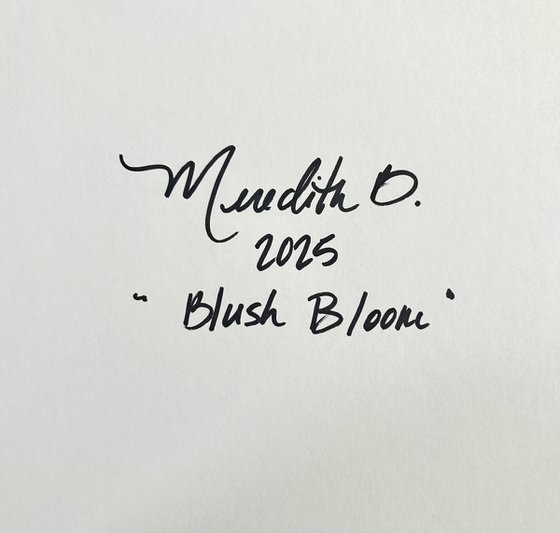 Meredith B.
2025
"Blush Bloom"